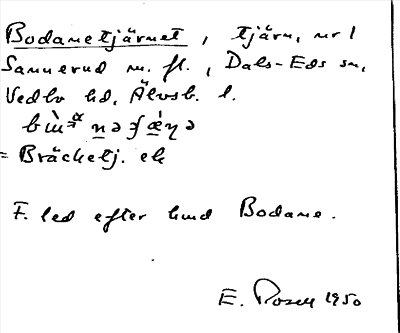 Bodanetjärnet, tjärn, nr 1
Sannerud m. fl., Dals-Eds sn,
Vedbo hd, Älvsb. l.
= Bräcketj. ek
F. led efter hmd Bodane.
E. Rosell 1950